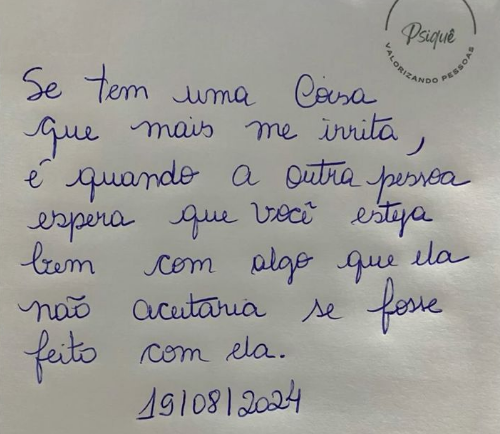 Psiquê
VALORIZANDO PESSOAS
Se tem uma Coisa
que mais me irrita,
é quando a outra pessoa
espera que você esteja
bem com algo que ela
não aceitaria se fosse
feito com ela.
19/08/2024